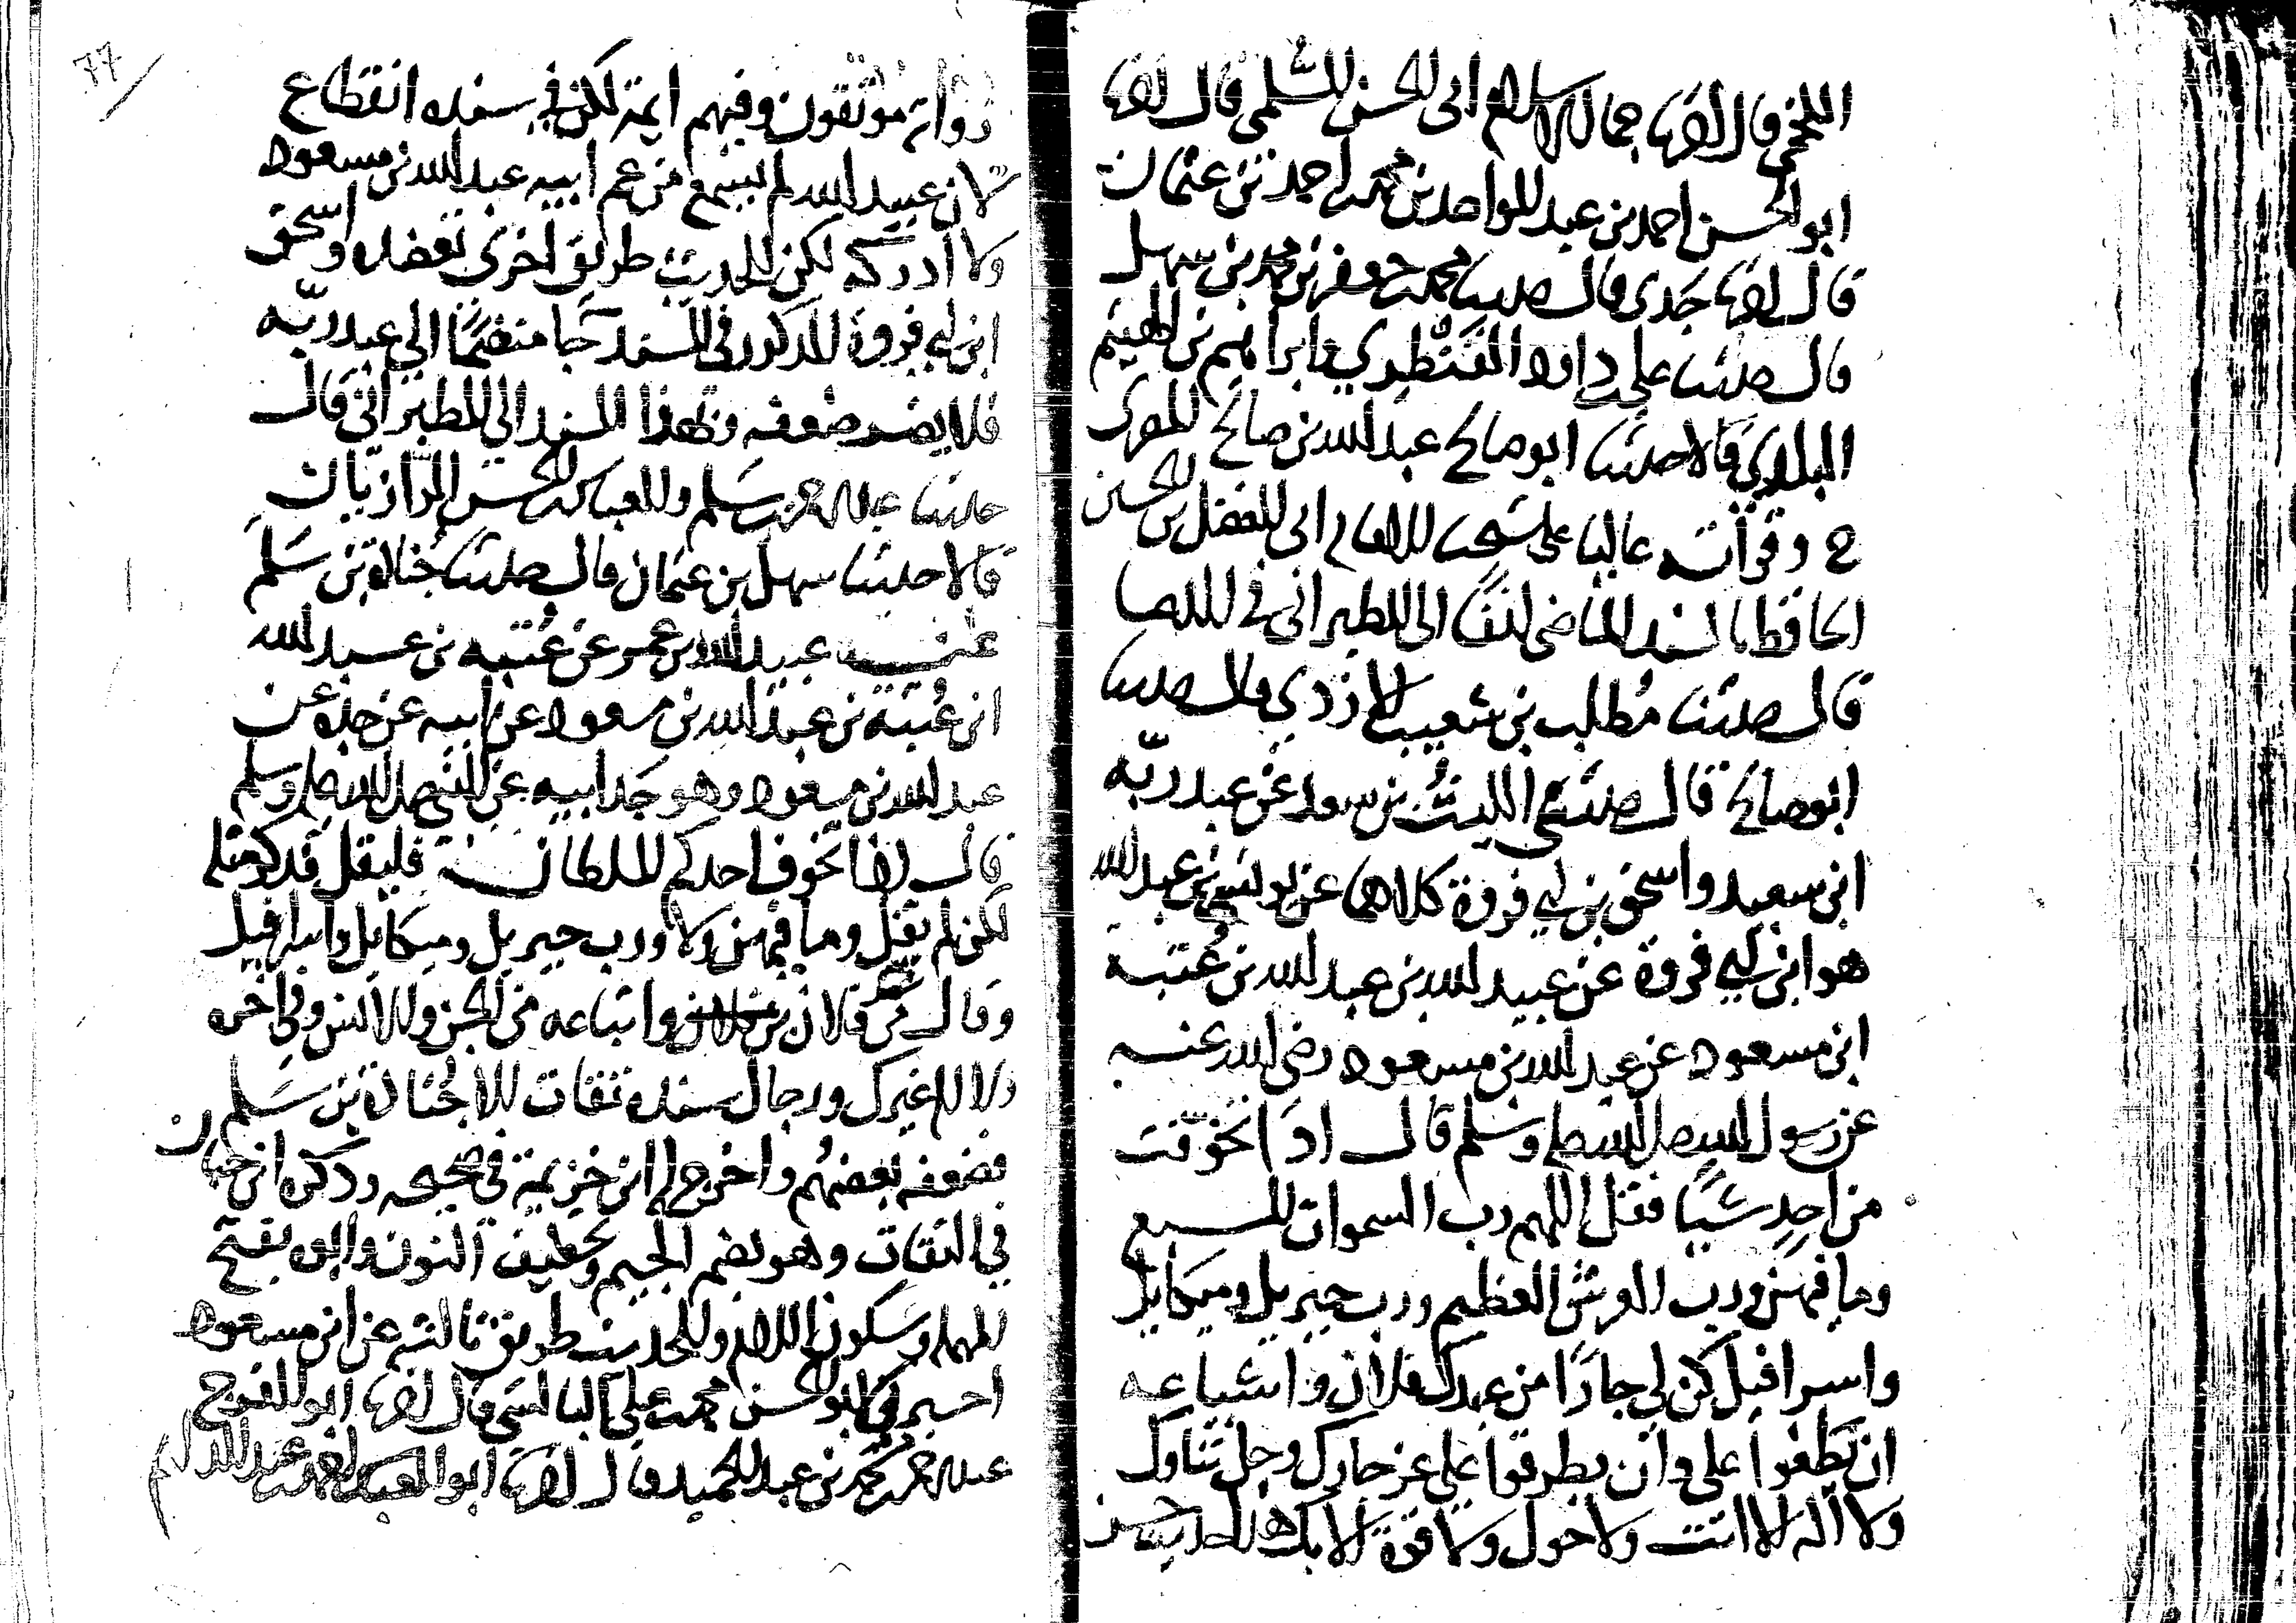 اللخمي قال اخبرنا جمال الاسلام ابي الحسن السلمي قال اخبرنا
ابو الحسن احمد بن عبد الواحد بن محمد بن احمد بن عثمان
قال اخبرنا جدي قال حدثنا محمد بن جعفر بن محمد بن سهل
قال حدثنا علي بن داود القنطري وابراهيم بن الهيثم
البلدي قالا حدثنا ابو صالح عبد الله بن صالح المصري
ح وقرأته عاليا على شيخنا الامام ابي الفضل بن الحسين
الحافظ بالسند الماضي انفا الى الطبراني في الدعا
قال حدثنا مُطلب بن شعيب الازدي قال حدثنا
ابو صالح قال حدثني الليث بن سعد عن عبد ربّه
ابن سعيد واسحق بن ابي فروة كلاهما عن يونس بن عبد الله
هو ابن ابي فروة عن عبيد الله بن عبد الله بن عُتبة
ابن مسعود عن عبد الله بن مسعود رضي الله عنه
عن رسول الله صلى الله عليه وسلم قال اذا تخوّفت
من احدٍ شيًا فقل اللهم رب السموات السبع
وما فيهن ورب العرش العظيم ورب جبريل وميكايل
واسرافيل كن لي جارًا من عبدك فلان واشياعه
ان يطغوا علي وان يفرطوا علي عز جارك وجل ثناوك
ولا اله الا انت ولا حول ولا قوة الا بك هذا حديث حسن
77
رواته موثقون وفيهم ايمة لكن في سنده انقطاع
لان عبيد الله لم يسمع من عم ابيه عبد الله بن مسعود
ولا ادركه لكن للحديث طريق اخرى تعضده واسحق
ابن ابي فروة المذكور في السند جا منضمًا الى عبد ربّه
فلا يضر ضعفه وبهذا السند الى الطبراني قال
حدثنا عبد الرحمن بن سلم والعباس بن الحسن الرازيان
قالا حدثنا سهل بن عثمان قال حدثنا جُنادة بن سَلْم
عن عبيد الله بن عمر عن عُتبه بن عبد الله
ابن عُتبة بن عبد الله بن مسعود عن ابيه عن جده عن
عبد الله بن مسعود وهو جد ابيه عن النبي صلى الله عليه وسلم
قال اذا تخوف احدكم السلطان فليقل فذكر مثله
لكن لم يقل وما فيهن ولا ورب جبريل وميكايل واسرافيل
وقال من شر فلان بن فلان واتباعه من الجن والانس وفي اخره
ولا اله غيرك ورجال سنده ثقات الا جُنادة بن سَلْم
فضعفه بعضهم واخرج له ابن خزيمة في صحيحه وذكره ابن حبان
في الثقات وهو بضم الجيم وتخفيف النون وابوه بفتح
المهملة وسكون اللام وللحديث طريق ثالثه عن ابن مسعود
اخبرني ابو الحسن محمد بن علي البالسي قال اخبرنا ابو الفرج
عبد الرحمن بن محمد بن عبد الحميد قال اخبرنا ابو العباس احمد بن عبد الدايم